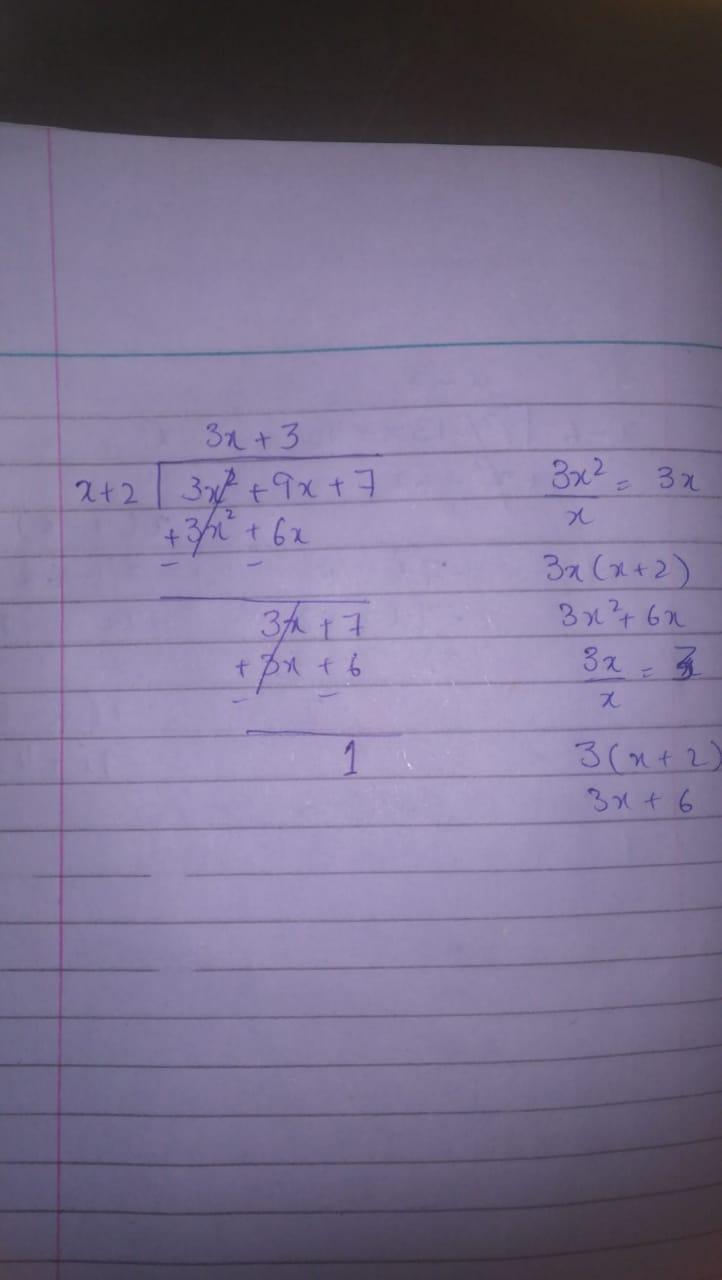 3x + 3
x+2 3x² + 9x + 7
+3x² + 6x
− −
3x + 7
+3x + 6
− −
1
3x²/x = 3x
3x(x+2)
3x²+6x
3x/x = 3
3(x+2)
3x + 6